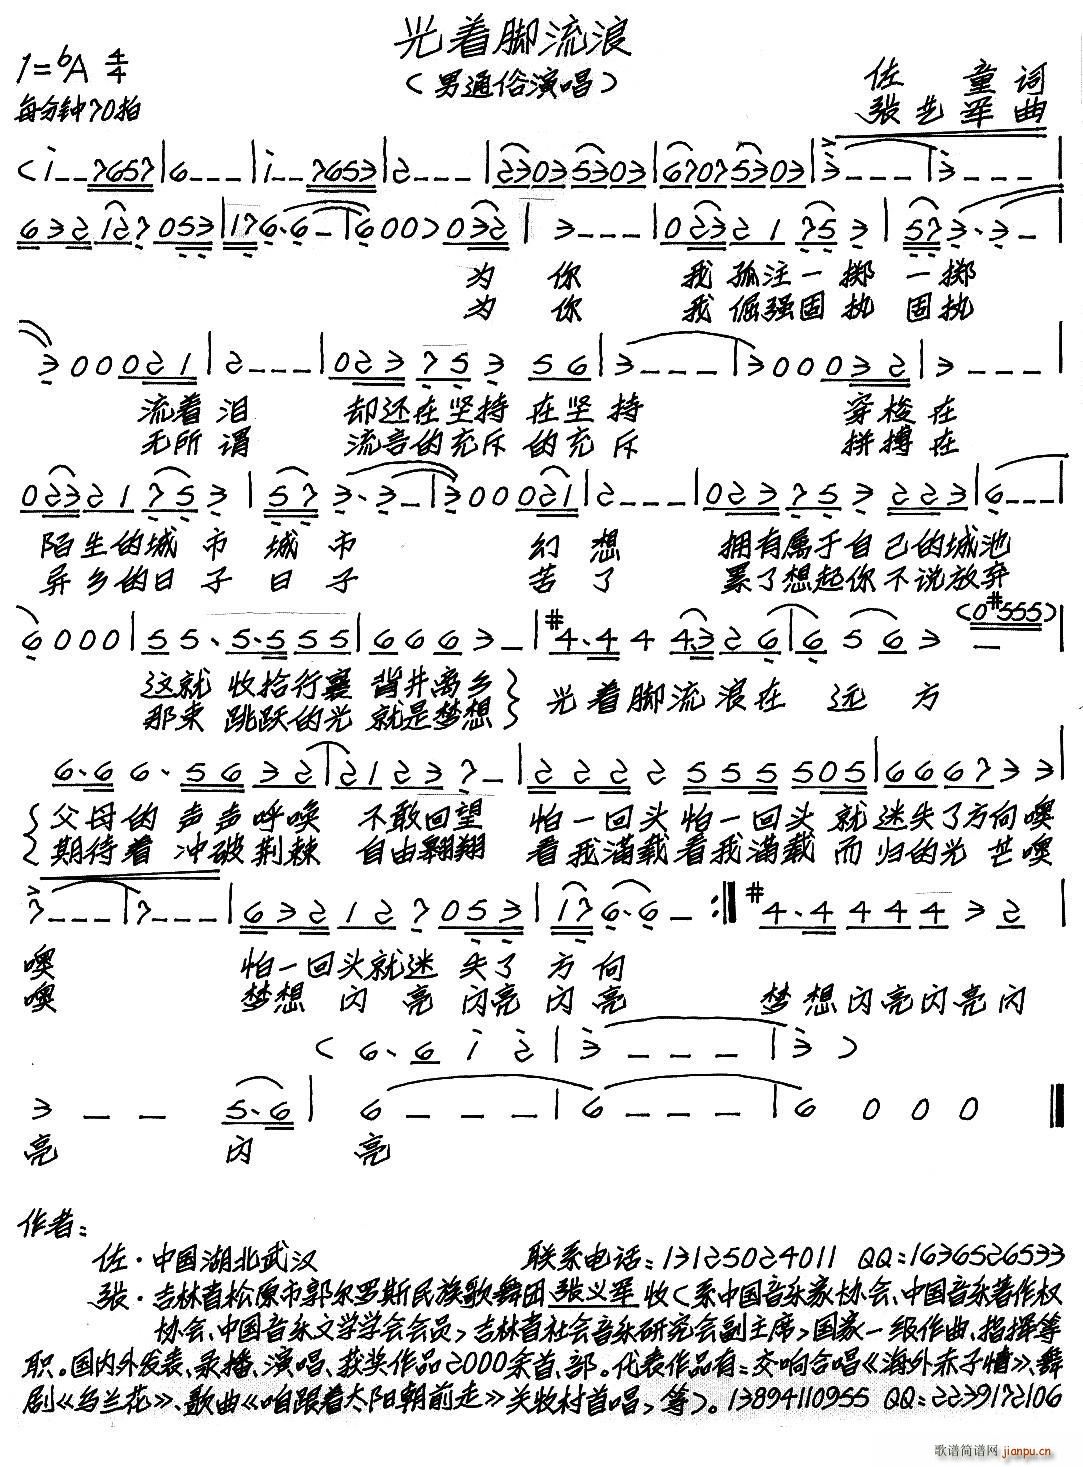 光着脚流浪
1=bA 4/4
(男通俗演唱)
佐 童 词
每分钟70拍
张艺军 曲
(i__7657|6___|i__7653|2___|23035303|67075303|3___|3___|
632127053|176·6_|6000)032|3___|02321753|573·3_|
为 你 我孤注一掷 一掷
为 你 我倔强固执 固执
300021|2___|02375356|3___|300032|3___|
流着泪 却还在坚持 在坚持 穿梭在
无所谓 流言的充斥 的充斥 拼搏在
02321753|573·3_|300021|2___|023753223|6___|
陌生的城市 城市 幻想 拥有属于自己的城池
异乡的日子 日子 苦了 累了想起你不说放弃
6000|55·5·555|6663_|#4·4444·326|6563_(0#555)|
这就 收拾行襄 背井离乡 光着脚流浪在 远 方
那束 跳跃的光 就是梦想
6·66·5632|21237_|2222555505|666733|
父母的 声声呼唤 不敢回望 怕一回头怕一回头 就迷失了方向噢
期待着 冲破荆棘 自由翱翔 看我满载看我满载 而归的光芒噢
7___|7___|632127053|176·6_:|#4·4444432|
噢 怕一回头就迷失了方向
噢 梦想闪亮闪亮闪亮 梦想闪亮闪亮闪
(6·6i2|3___|3)
3__5·6|6___|6___|6000
亮 闪 亮
作者:
佐·中国湖北武汉 联系电话:13125024011 QQ:1636526533
张·吉林省松原市郭尔罗斯民族歌舞团张义军收(系中国音乐家协会、中国音乐著作权
协会、中国音乐文学学会会员,吉林省社会音乐研究会副主席,国家一级作曲、指挥等
职。国内外发表、录播、演唱、获奖作品2000余首、部。代表作品有:交响合唱《海外赤子情》、舞
剧《乌兰花》、歌曲《咱跟着太阳朝前走》关牧村首唱,等)。13894110955 QQ:2239172106
歌谱简谱网 jianpu.cn